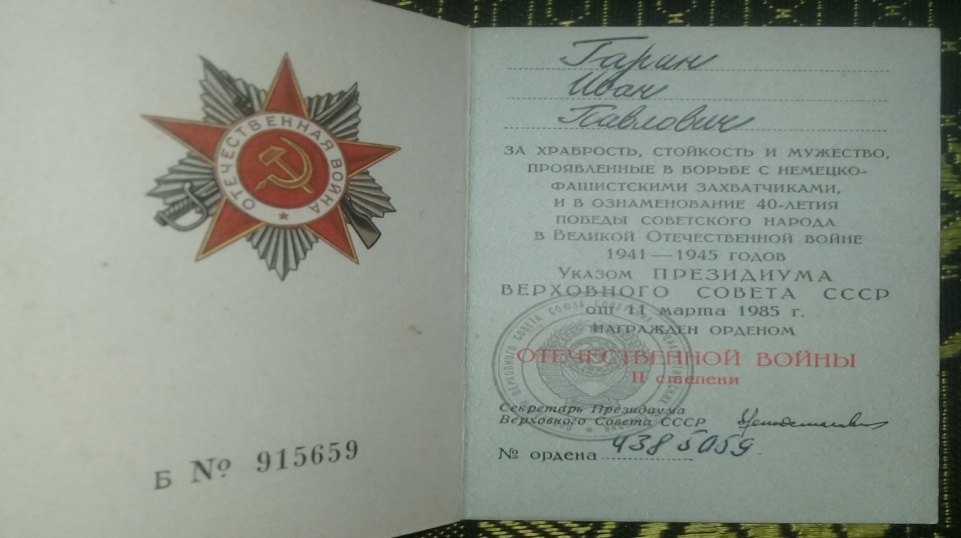 ОТЕЧЕСТВЕННАЯ ВОЙНА
Б № 915659
Гарин
Иван
Павлович
ЗА ХРАБРОСТЬ, СТОЙКОСТЬ И МУЖЕСТВО,
ПРОЯВЛЕННЫЕ В БОРЬБЕ С НЕМЕЦКО-
ФАШИСТСКИМИ ЗАХВАТЧИКАМИ,
И В ОЗНАМЕНОВАНИЕ 40-ЛЕТИЯ
ПОБЕДЫ СОВЕТСКОГО НАРОДА
В ВЕЛИКОЙ ОТЕЧЕСТВЕННОЙ ВОЙНЕ
1941—1945 ГОДОВ
УКАЗОМ ПРЕЗИДИУМА
ВЕРХОВНОГО СОВЕТА СССР
от 11 марта 1985 г.
НАГРАЖДЕН ОРДЕНОМ
ОТЕЧЕСТВЕННОЙ ВОЙНЫ
II степени
Секретарь Президиума
Верховного Совета СССР
№ ордена 4385059